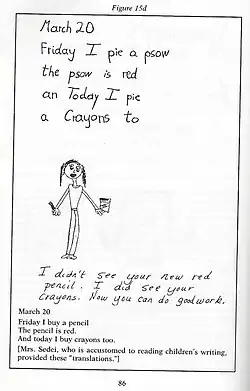 Figure 15d
March 20
Friday I pie a psow
the psow is red
an Today I pie
a Crayons to
I didn't see your new red
pencil. I did see your
Crayons. Now you can do good work.
March 20
Friday I buy a pencil
The pencil is red.
And today I buy crayons too.
[Mrs. Sedei, who is accustomed to reading children's writing,
provided these "translations."]
86